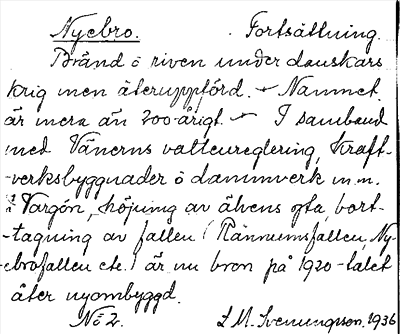 Nyebro. Fortsättning.
Bränd o riven under danskars
krig men återuppförd. - Namnet
är mera än 200-årigt. - I samband
med Vänerns vattenreglering, kraft-
-verksbyggnader o dammverk m.m.
i Vargön, höjning av älvens yta, bort-
-tagning av fallen (Rännumsfallen, Ny-
ebrofallen etc.) är nu bron på 1920-talet
åter nyombyggd.
No 2. L M. Svenungson. 1936